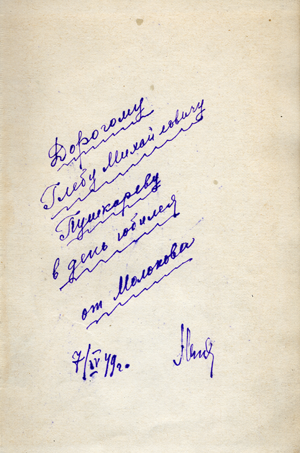 Дорогому
Глебу Михайловичу
Пушкареву
в день юбилея
от Молокова
7/IV 49 г.